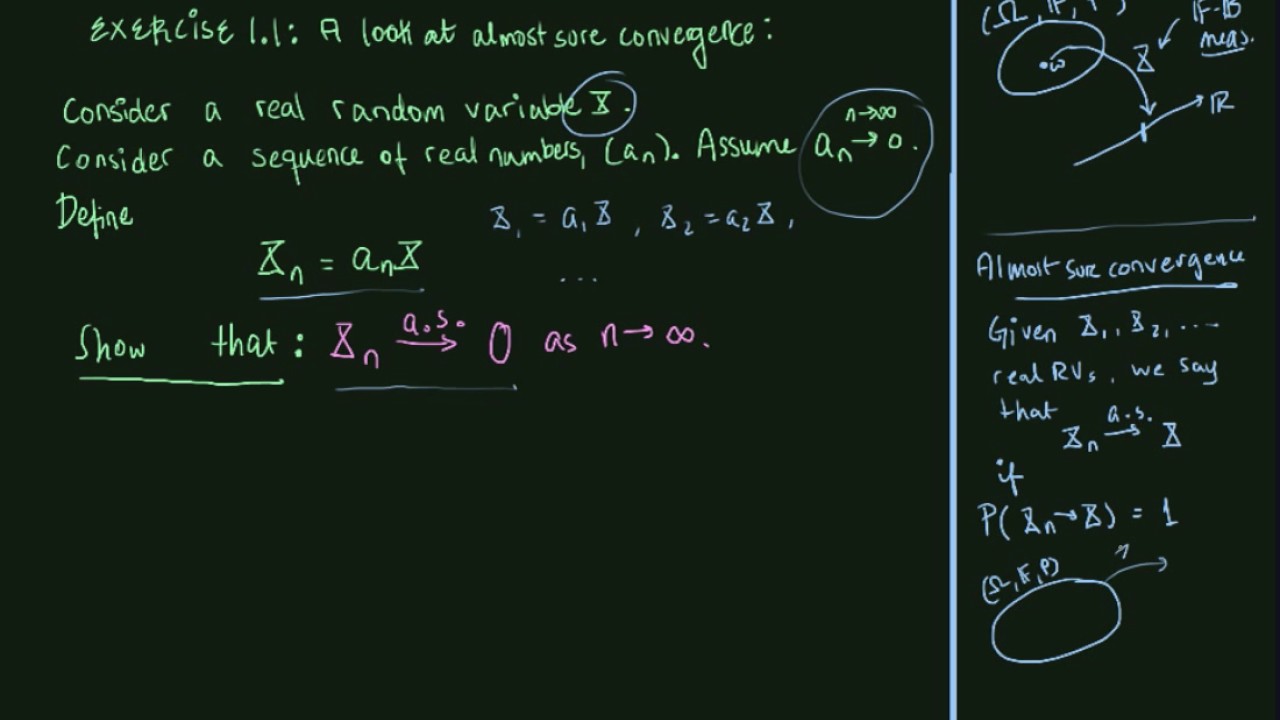 EXERCISE 1.1: A look at almost sure convergence:
Consider a real random variable X.
Consider a sequence of real numbers, (aₙ). Assume aₙ → 0. n→∞
Define X₁ = a₁X, X₂ = a₂X,
Xₙ = aₙX ...
Show that: Xₙ a.s.→ 0 as n→∞.
(Ω, F, P) F-B
X meas.
•ω
R
Almost sure convergence
Given X₁, X₂, ....
real RVs, we say
that
Xₙ a.s.→ X
if
P(Xₙ→X) = 1
(Ω, F, P)